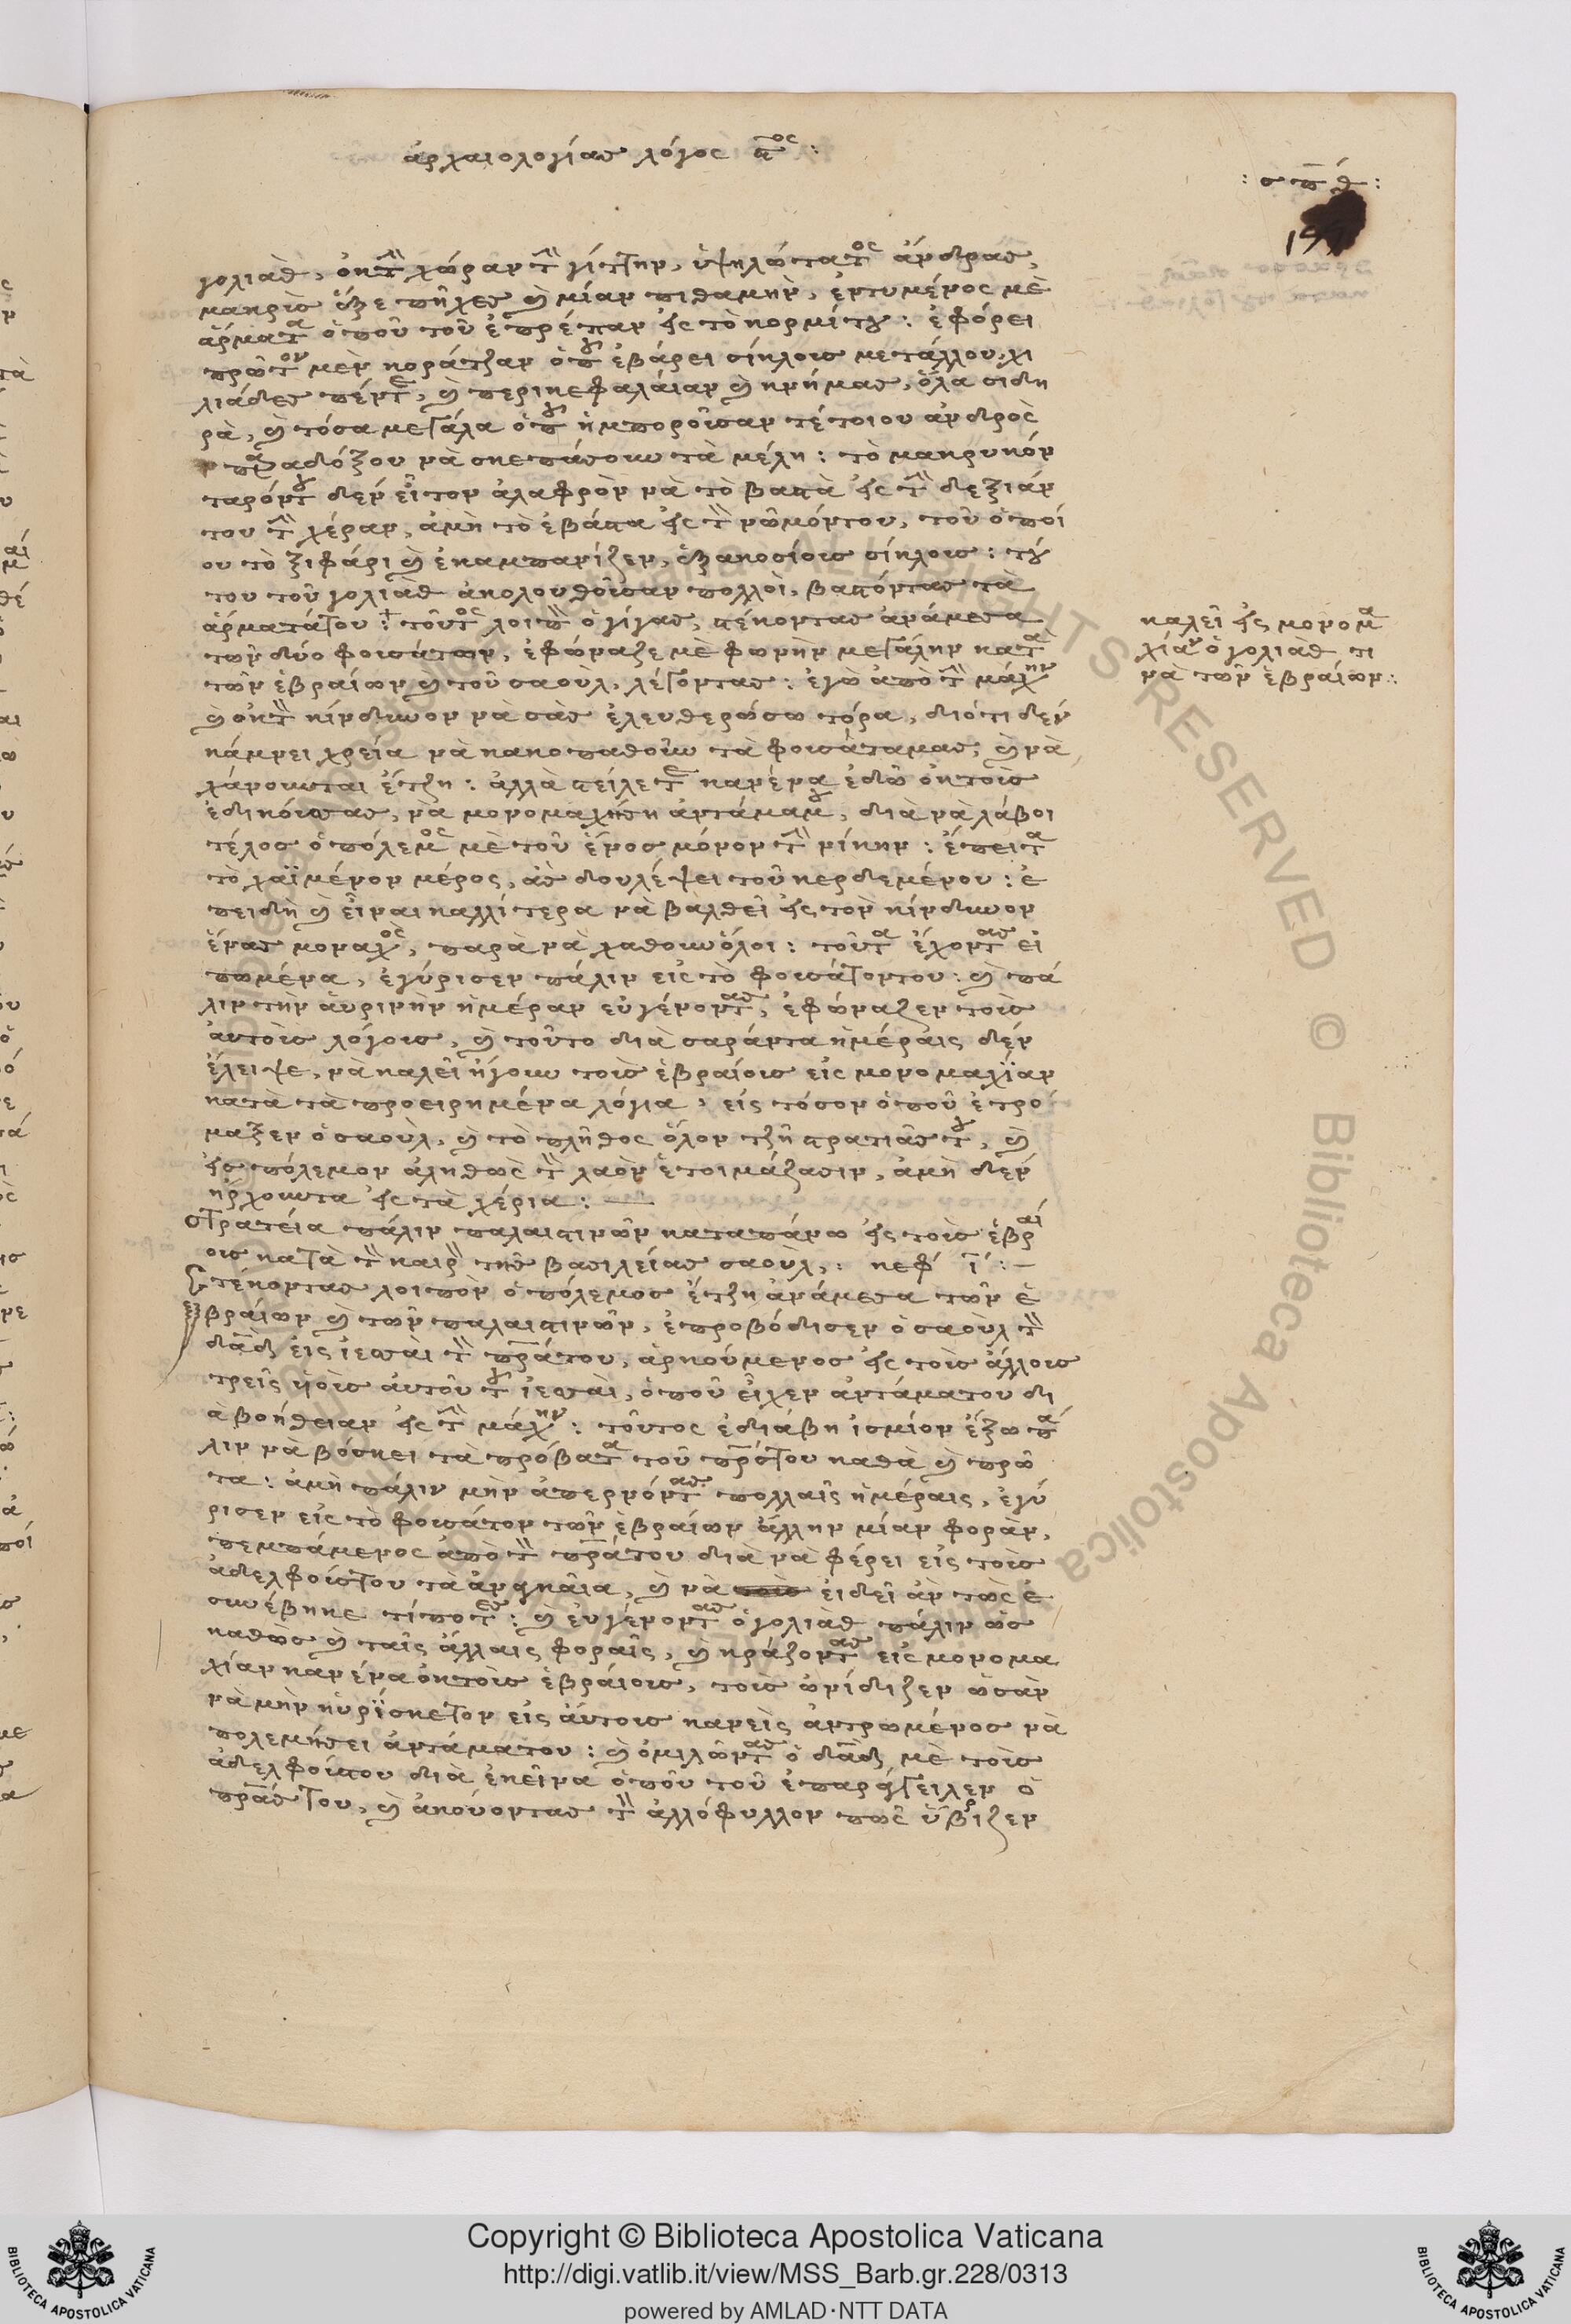 ἀρχαιολογίας λόγος ϛ^ος :
: σπθ :
γολιὰθ, ἐκτὴν χώραν τὴν γίτην, ὑψηλώτατος ἄνδρας,
μακρὺς ἕξε πῆχες καὶ μίαν πιθαμὴν, ἐντυμένος μὲ
ἄρματα ὁποῦ τοῦ ἐπρέπαν εἰς τὸ κορμί του : ἐφόρει
πρῶτον μὲν κοράτζαν ὁποῦ ἐβάρει σίκλους μετάλλου, χι
λιάδες πέντε, καὶ περικεφαλάιαν καὶ κνήμας, ὅλα σιδη
ρὰ, καὶ τόσα μεγάλα ὁποῦ ἠμποροῦσαν τέτοιου ἀνδρὸς
παραδόξου νὰ σκεπάσουν τὰ μέλη : τὸ μακρυκόν
ταρόντου δὲν εἶτον ἀλαφρὸν νὰ τὸ βαστὰ εἰς τὴν δεξιάν
του τὴν χέραν, ἀμὴ τὸ ἐβάστα εἰς τὸν νῶμόντου, τοῦ ὁποί
ου τὸ ξιφάρι καὶ ἐκαμπανίζεν, ἑξακοσίους σίκλους : τού
του τοῦ γολιὰθ ἀκολουθοῦσαν πολλοὶ, βαστόντας τὰ
ἄρματάτου : τοῦτος λοιπὸν ὁ γίγας, στέκοντας ἀνάμεσα
τῶν δύο φουσάτων, ἐφώναξε μὲ φωνὴν μεγάλην κατὰ
τῶν ἑβραίων καὶ τοῦ σαοὺλ, λέγοντας : ἐγὼ ἀπὸ τὴν μάχην
καὶ ἐκτὸν κίνδυνον νὰ σᾶς ἐλευθερώσω τόρα, διότι δὲν
κάμνει χρεία νὰ κακοπαθοῦν τὰ φουσάταμας, καὶ νὰ
χάνουνται ἔτζη : ἀλλὰ στείλετε κανένα ἐδῶ ἐκτοὺς
ἐδικόυσας, νὰ μονομαχήση ἀντάμαμου, διὰ νὰ λάβοι
τέλος ὁ πόλεμος μὲ τοῦ ἑνὸς μόνον τὴν νίκην : ἔπειτα
τὸ χαϊμένον μέρος, ἂς δουλέψει τοῦ κερδεμένου : ἐ
πειδὴ καὶ εἶναι καλλίτερα νὰ βαλθεῖ εἰς τὸν κίνδυνον
ἕνας μοναχὸς, παρὰ νὰ χαθοῦν ὅλοι : τοῦτα ἔχοντας εἰ
πωμένα, ἐγύρισεν πάλιν εἰς τὸ φουσάτοντου : καὶ πά
λιν τὴν ἀυρινὴν ἡμέραν εὐγένοντας, ἐφώναζεν τοὺς
ἀυτοὺς λόγους, καὶ τοῦτο διὰ σαράντα ἡμέραις δὲν
ἔλειψε, νὰ καλεῖ ἤγουν τοὺς ἑβραίους εἰς μονομαχίαν
κατὰ τὰ προειρημένα λόγια, εἰς τόσον ὁποῦ ἐτρό
μαξεν ὁ σαοὺλ, καὶ τὸ πλῆθος ὅλον τζῆ στρατιᾶς του, καὶ
εἰς πόλεμον ἀληθῶς τὸν λαὸν ἑτοιμάζασιν, ἀμὴ δὲν
ἤρχουντα εἰς τὰ χέρια : —
στρατεία πάλιν παλαιστινῶν καταπάνω εἰς τοὺς ἑβραί
ους κατὰ τὸν καιρὸν τῆς βασιλείας σαοὺλ, : κεφ ι : —
Στέκοντας λοιπὸν ὁ πόλεμος ἔτζη ἀνάμεσα τῶν ἑ
βραίων καὶ τῶν παλαιστινῶν, ἐπροβόδισεν ὁ σαοὺλ τὸν
δαδ εἰς ἰεσσαὶ τὸν πράτου, ἀρκούμενος εἰς τοὺς ἄλλους
τρεῖς ὑοὺς ἀυτοῦ τοῦ ἰεσσαὶ, ὁποῦ εἶχεν ἀντάματου δι
ὰ βοήθειαν εἰς τὴν μάχην : τοῦτος ἐδιάβη ἰσμίον ἔξω πά
λιν νὰ βόσκει τὰ πρόβατα τοῦ πρστου καθὰ καὶ πρῶ
τα : ἀμὴ πάλιν μὴν ἀπερνόντας πολλαῖς ἡμέραις, ἐγύ
ρισεν εἰς τὸ φουσάτον τῶν ἑβραίων ἄλλην μίαν φορὰν,
πεμπάμενος ἀπὸ τὸν πράτου διὰ νὰ φέρει εἰς τοὺς
ἀδελφούστου τὰ ἀνακαῖα, καὶ νὰ εἰδεῖ ἂν τως ἐ
συνέβηκε τίποτες : καὶ ἐυγένοντας ὁ γολιὰθ πάλιν ὡς
καθὼς καὶ ταῖς ἄλλαις φοραῖς, καὶ κράζοντας εἰς μονομα
χίαν κανένα ἐκτοὺς ἑβράιους, τοὺς ὠνίδιζεν ὡσὰν
νὰ μὴν ηὑρίσκετον εἰς ἀυτους κανεὶς ἀντρωμένος νὰ
πολεμήσει ἀντάματου : καὶ ὁμιλῶντας ὁ δαδ μὲ τοὺς
ἀδελφούστου διὰ ἐκεῖνα ὁποῦ τοῦ ἐπαράγγειλεν ὁ
πράστου, καὶ ἀκούοντας τὸν ἀλλόφυλλον πῶς ὕβριζεν
καλεῖ εἰς μονομα
χίαν ὁ γολιὰθ τι
νὰ τῶν ἑβραίων :
Copyright © Biblioteca Apostolica Vaticana
http://digi.vatlib.it/view/MSS_Barb.gr.228/0313
powered by AMLAD·NTT DATA